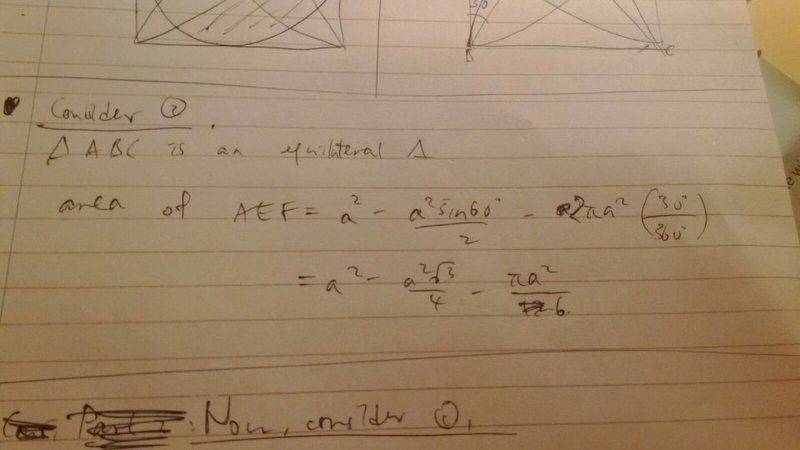 30
B
C
Consider ②
Δ ABC is an equilateral Δ
area of AEF = a² - a² sin60° / 2 - 2πa² (30° / 360°)
= a² - a²√3 / 4 - πa² / 6
: Now, consider ①,